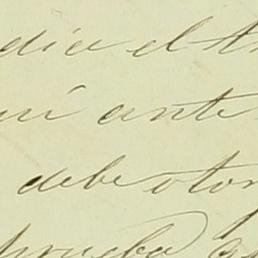 dice el t
uí ante
debe oto
prueba